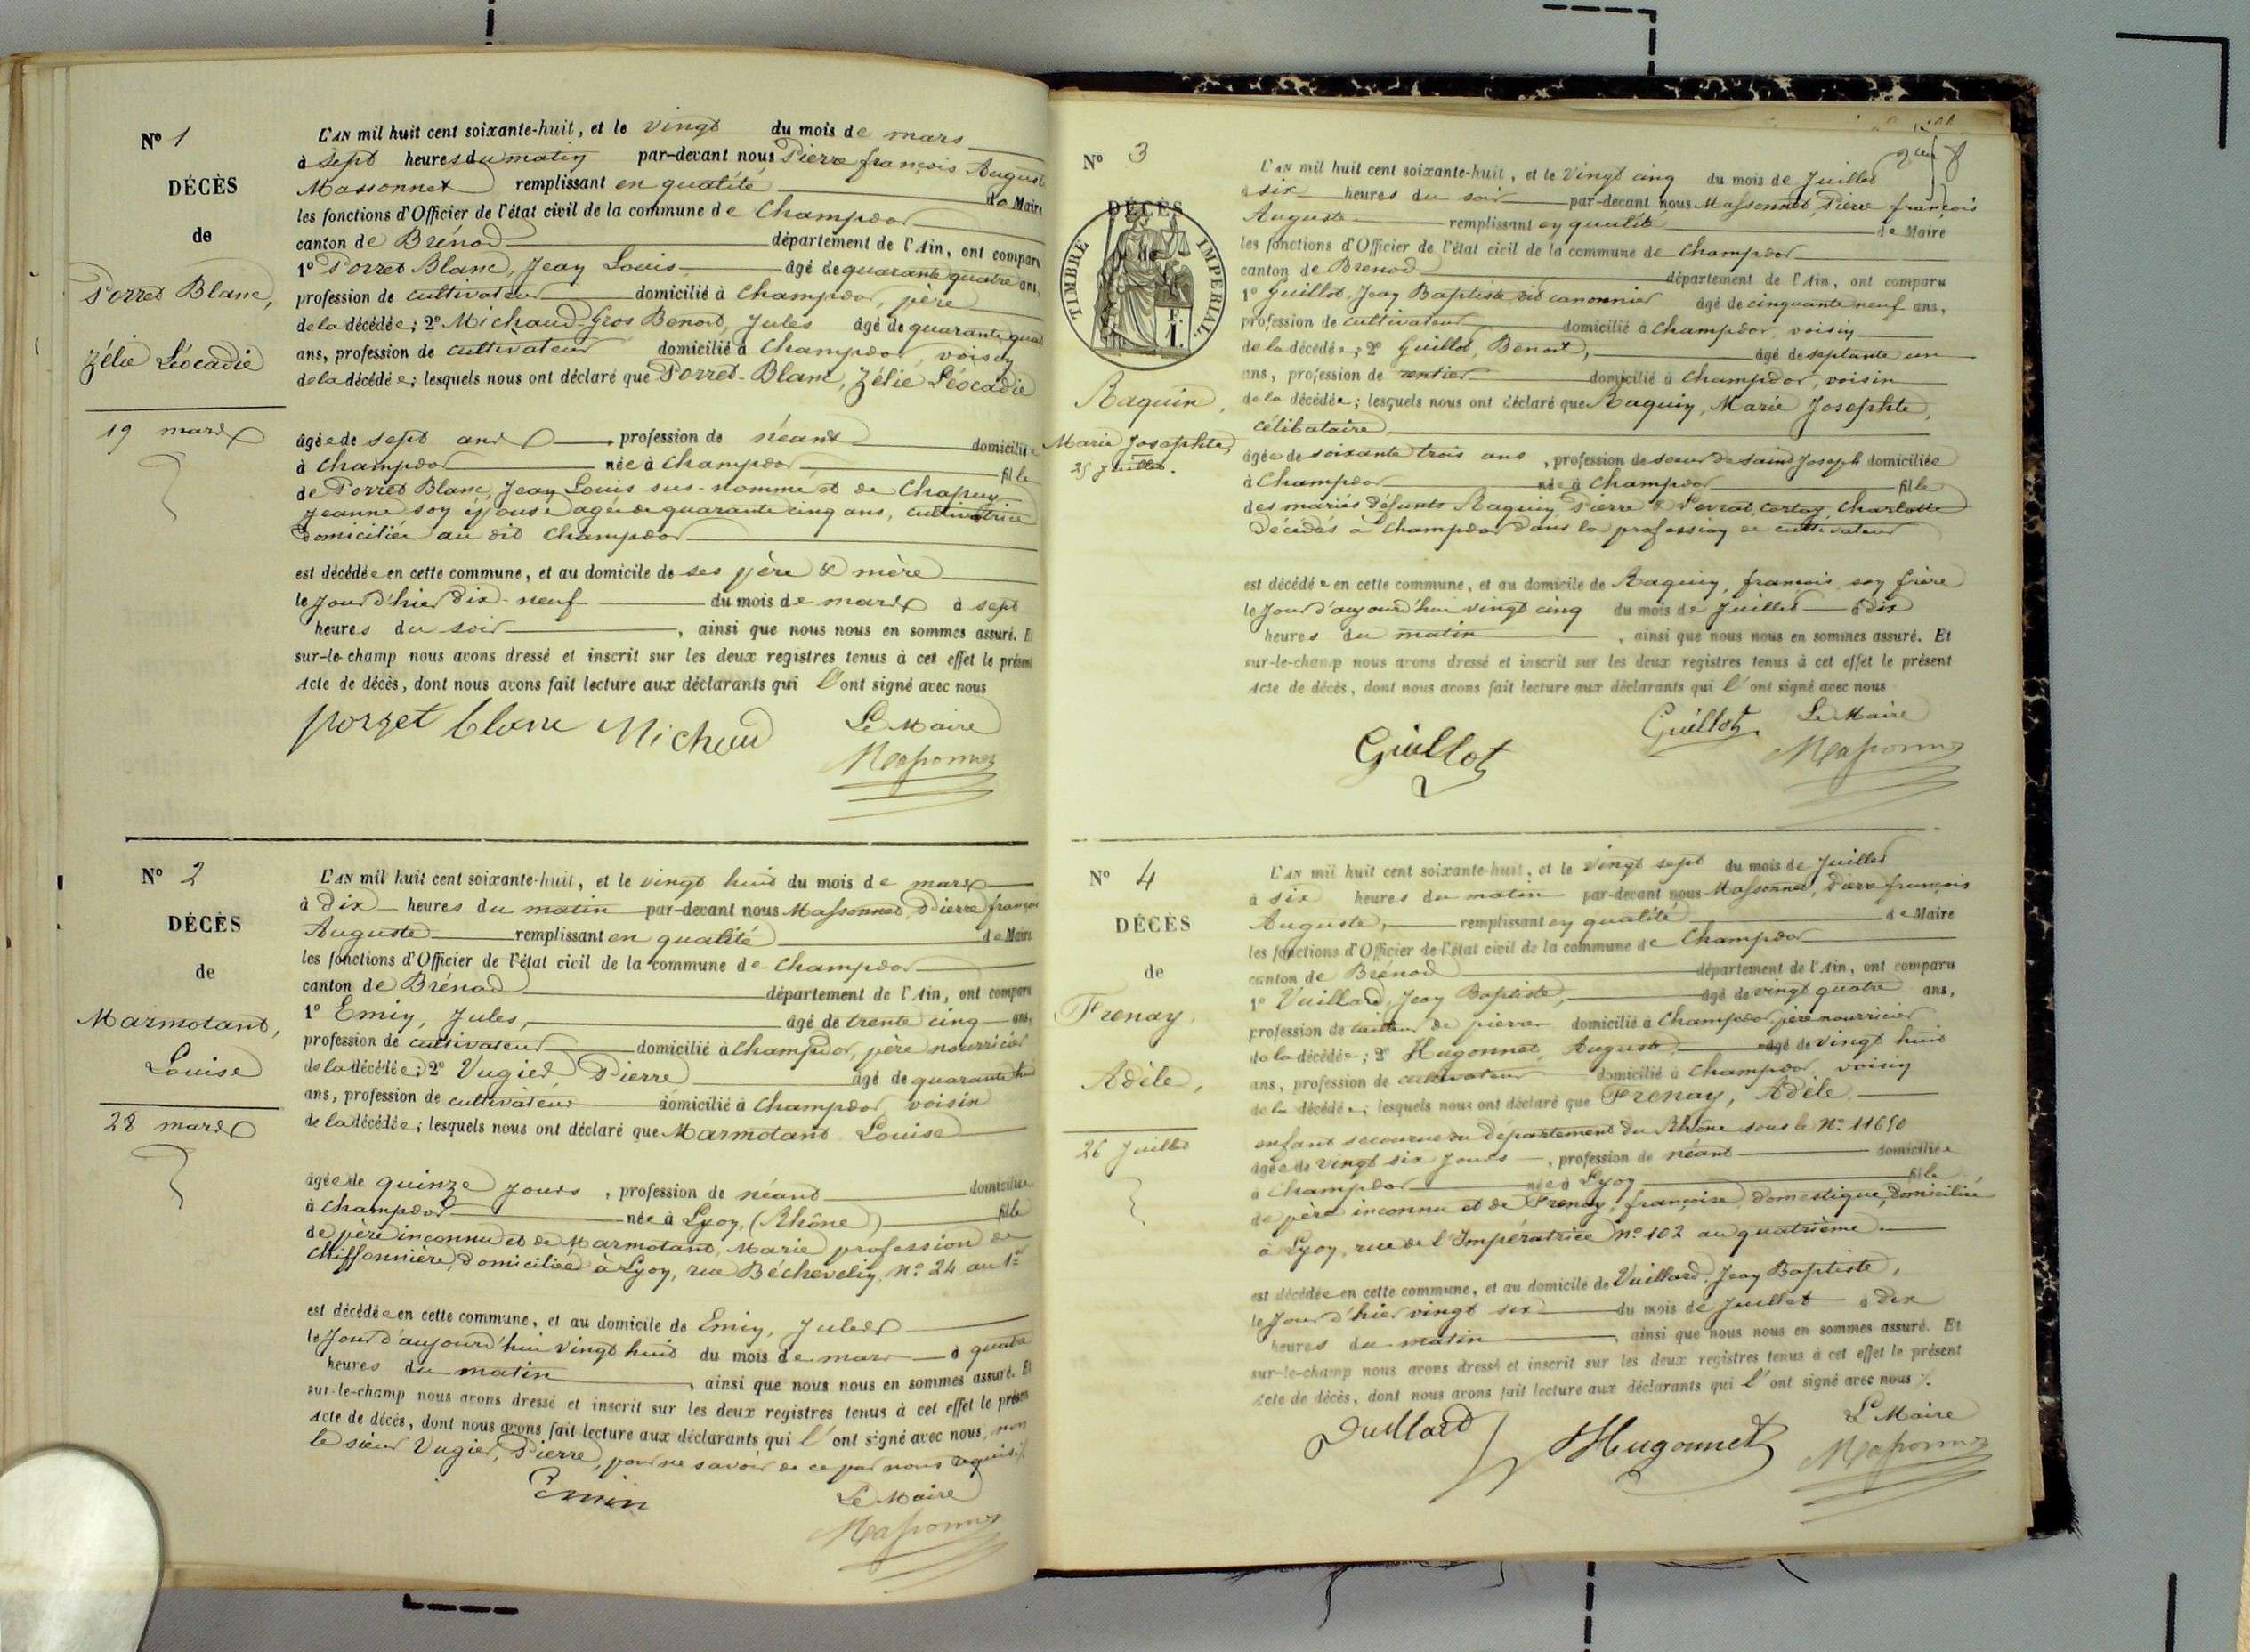 Nº 1
DÉCÈS
de
Porret Blanc,
Zélie Léocadie
19 mars
L'AN mil huit cent soixante-huit, et le vingt du mois de mars
à sept heures du matin par-devant nous Pierre françois Auguste
Massonnet remplissant en qualité de Maire
les fonctions d'Officier de l'état civil de la commune de Champdor
canton de Brénod département de l'Ain, ont comparu
1º Porret Blanc, Jean Louis âgé de quarante quatre ans,
profession de cultivateur domicilié à Champdor, père
de la décédée; 2º Michaud-Gros Benoit, Jules âgé de quarante quat
ans, profession de cultivateur domicilié à Champdor, voisin
de la décédée; lesquels nous ont déclaré que Porret-Blanc, Zélie Léocadie
âgée de sept ans profession de néant domiciliée
à Champdor née à Champdor fille
de Porret Blanc, Jean Louis sus-nommé et de Chapuy
Jeanne son épouse agée de quarante cinq ans, cultivatrice
domiciliée au dit Champdor
est décédée en cette commune, et au domicile de ses père & mère
le jour d'hier dix-neuf du mois de mars à sept
heures du soir, ainsi que nous nous en sommes assuré. Et
sur-le-champ nous avons dressé et inscrit sur les deux registres tenus à cet effet le présent
Acte de décès, dont nous avons fait lecture aux déclarants qui l'ont signé avec nous
porret blanc Michaud Le Maire
Massonnet
Nº 2
DÉCÈS
de
Marmotant,
Louise
28 mars
L'AN mil huit cent soixante-huit, et le vingt huit du mois de mars
à dix heures du matin par-devant nous Massonnet, Pierre françois
Auguste remplissant en qualité de Maire
les fonctions d'Officier de l'état civil de la commune de Champdor
canton de Brénod département de l'Ain, ont comparu
1º Emin, Jules, âgé de trente cinq ans,
profession de cultivateur domicilié à Champdor, père nourricier
de la décédée; 2º Vugier, Pierre, âgé de quarante huit
ans, profession de cultivateur domicilié à Champdor, voisin
de la décédée; lesquels nous ont déclaré que Marmotant Louise
âgée de quinze jours, profession de néant domiciliée
à Champdor née à Lyon, (Rhône) fille
de père inconnu et de Marmotant, Marie profession de
chiffonnière, domiciliée à Lyon, rue Béchevelin, Nº 24 au 1er
est décédée en cette commune, et au domicile de Emin, Jules
le jour d'aujourd'hui vingt huit du mois de mars à quatre
heures du matin, ainsi que nous nous en sommes assuré. Et
sur-le-champ nous avons dressé et inscrit sur les deux registres tenus à cet effet le présent
Acte de décès, dont nous avons fait lecture aux déclarants qui l'ont signé avec nous, non
le sieur Vugier, Pierre, pour ne savoir de ce par nous requis
Emin Le Maire
Massonnet
Nº 3
DÉCÈS
de
TIMBRE IMPERIAL
Raquin,
Marie Josephte,
25 Juillet.
L'AN mil huit cent soixante-huit, et le vingt cinq du mois de Juillet
à six heures du soir par-devant nous Massonnet, Pierre françois
Auguste remplissant en qualité de Maire
les fonctions d'Officier de l'état civil de la commune de Champdor
canton de Brenod département de l'Ain, ont comparu
1º Guillot, Jean Baptiste dit canonnier âgé de cinquante neuf ans,
profession de cultivateur domicilié à Champdor, voisin
de la décédée; 2º Guillot, Benoit, âgé de septante un
ans, profession de rentier domicilié à Champdor, voisin
de la décédée; lesquels nous ont déclaré que Raquin, Marie Josephte,
célibataire,
âgée de soixante trois ans, profession de soeur de saint Joseph domiciliée
à Champdor née à Champdor fille
des mariés défunts Raquin, Pierre & Levrat, Cortay, Charlotte
décédés à Champdor dans la profession de cultivateur
est décédée en cette commune, et au domicile de Raquin, françois son frère
le jour d'aujourd'hui vingt cinq du mois de Juillet à dix
heures du matin, ainsi que nous nous en sommes assuré. Et
sur-le-champ nous avons dressé et inscrit sur les deux registres tenus à cet effet le présent
Acte de décès, dont nous avons fait lecture aux déclarants qui l'ont signé avec nous
Guillot Guillot Le Maire
Massonnet
Nº 4
DÉCÈS
de
Frenay,
Adèle,
26 Juillet
L'AN mil huit cent soixante-huit, et le vingt sept du mois de Juillet
à six heures du matin par-devant nous Massonnet, Pierre françois
Auguste, remplissant en qualité de Maire
les fonctions d'Officier de l'état civil de la commune de Champdor
canton de Brénod département de l'Ain, ont comparu
1º Vuillard, Jean Baptiste, âgé de vingt quatre ans,
profession de tailleur de pierre domicilié à Champdor, père nourricier
de la décédée; 2º Hugonnet, Auguste, âgé de vingt huit
ans, profession de cultivateur domicilié à Champdor, voisin
de la décédée; lesquels nous ont déclaré que Frenay, Adèle,
enfant secourue du département du Rhône sous le Nº 11650
âgée de vingt six jours, profession de néant domiciliée
à Champdor née à Lyon fille
de père inconnu et de Frenay, françoise, domestique, domiciliée
à Lyon, rue de l'Impératrice nº 102 au quatrième
est décédée en cette commune, et au domicile de Vuillard, Jean Baptiste,
le jour d'hier vingt six du mois de Juillet à dix
heures du matin, ainsi que nous nous en sommes assuré. Et
sur-le-champ nous avons dressé et inscrit sur les deux registres tenus à cet effet le présent
Acte de décès, dont nous avons fait lecture aux déclarants qui l'ont signé avec nous
Vuillard Hugonnet Le Maire
Massonnet